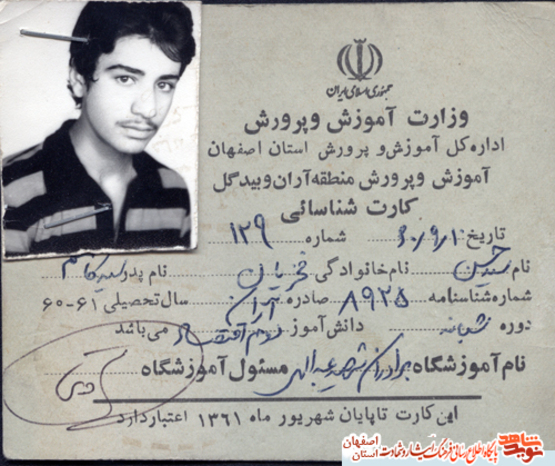 جمهوری اسلامی ایران
وزارت آموزش و پرورش
اداره کل آموزش و پرورش استان اصفهان
آموزش و پرورش منطقه آران و بیدگل
کارت شناسائی
تاریخ: ۶۰/۹/۱ شماره ۱۲۹
نام سید حسین نام خانوادگی فخریان نام پدر سید کاظم
شماره شناسنامه ۸۹۲۵ صادره آران سال تحصیلی ۶۱-۶۰
دوره شبانه دانش آموز دوم اقتصاد می باشد
نام آموزشگاه برادران شهید عبدالهی مسئول آموزشگاه
این کارت تا پایان شهریور ماه ۱۳۶۱ اعتبار دارد
نوید شاهد
پایگاه اطلاع رسانی فرهنگ ایثار و شهادت استان اصفهان